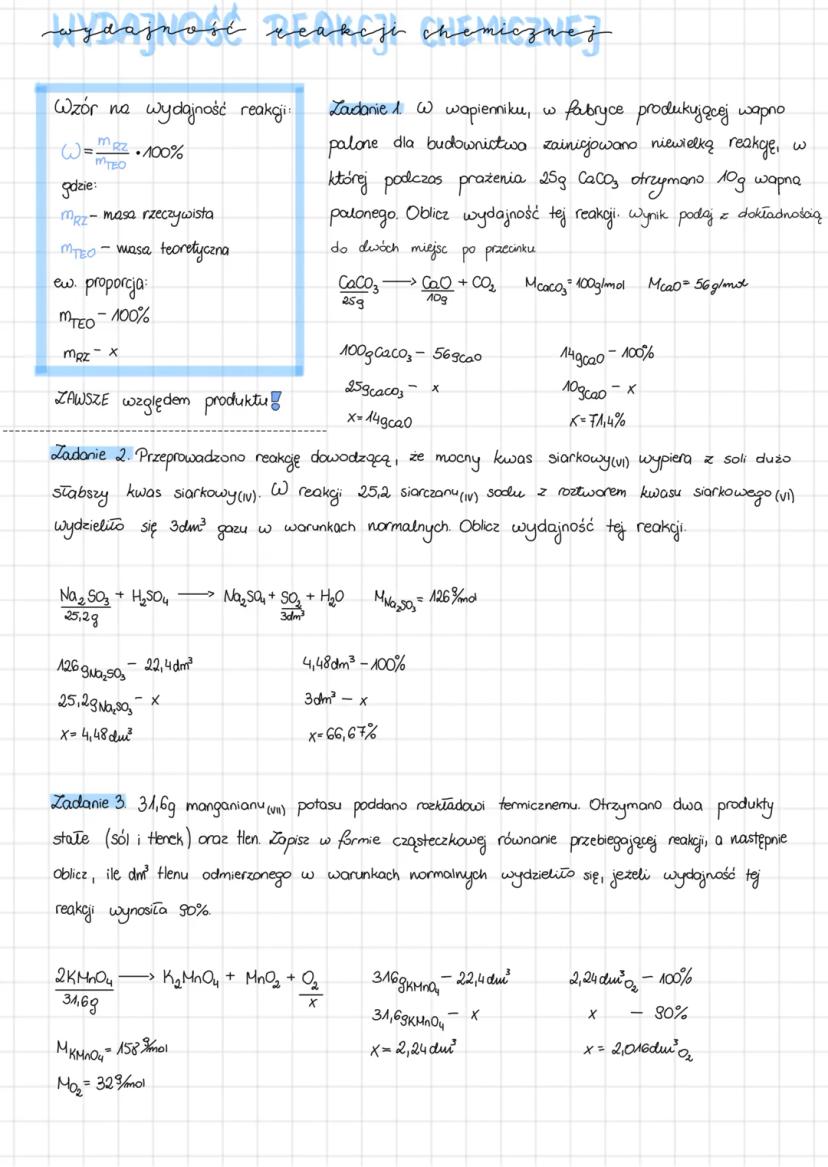 WYDAJNOŚĆ REAKCJI CHEMICZNEJ
wydajność reakcji chemicznej
Wzór na wydajność reakcji:
W = mRZ / mTEO · 100%
gdzie:
mRZ - masa rzeczywista
mTEO - masa teoretyczna
ew. proporcja:
mTEO - 100%
mRZ - x
ZAWSZE względem produktu!
Zadanie 1. W wapienniku, w fabryce produkującej wapno
palone dla budownictwa zainicjowano niewielką reakcję, w
której podczas prażenia 25g CaCO₃ otrzymano 10g wapna
palonego. Oblicz wydajność tej reakcji. Wynik podaj z dokładnością
do dwóch miejsc po przecinku
CaCO₃ → CaO + CO₂ MCaCO₃ = 100g/mol MCaO = 56g/mol
25g 10g
100gCaCO₃ - 56gCaO 14gCaO - 100%
25gCaCO₃ - x 10gCaO - x
x = 14gCaO x = 71,4%
Zadanie 2. Przeprowadzono reakcję dowodzącą, że mocny kwas siarkowy(VI) wypiera z soli dużo
słabszy kwas siarkowy(IV). W reakcji 25,2 siarczanu(IV) sodu z roztworem kwasu siarkowego(VI)
wydzieliło się 3dm³ gazu w warunkach normalnych. Oblicz wydajność tej reakcji.
Na₂SO₃ + H₂SO₄ → Na₂SO₄ + SO₂ + H₂O MNa₂SO₃ = 126g/mol
25,2g 3dm³
126gNa₂SO₃ - 22,4dm³ 4,48dm³ - 100%
25,2gNa₂SO₃ - x 3dm³ - x
x = 4,48dm³ x = 66,67%
Zadanie 3. 31,6g manganianu(VII) potasu poddano rozkładowi termicznemu. Otrzymano dwa produkty
stałe (sól i tlenek) oraz tlen. Zapisz w formie cząsteczkowej równanie przebiegającej reakcji, a następnie
oblicz, ile dm³ tlenu odmierzonego w warunkach normalnych wydzieliło się, jeżeli wydajność tej
reakcji wynosiła 90%.
2KMnO₄ → K₂MnO₄ + MnO₂ + O₂ 316gKMnO₄ - 22,4dm³ 2,24dm³O₂ - 100%
31,6g x 31,6gKMnO₄ - x x - 90%
MKMnO₄ = 158g/mol x = 2,24dm³ x = 2,016dm³O₂
MO₂ = 32g/mol